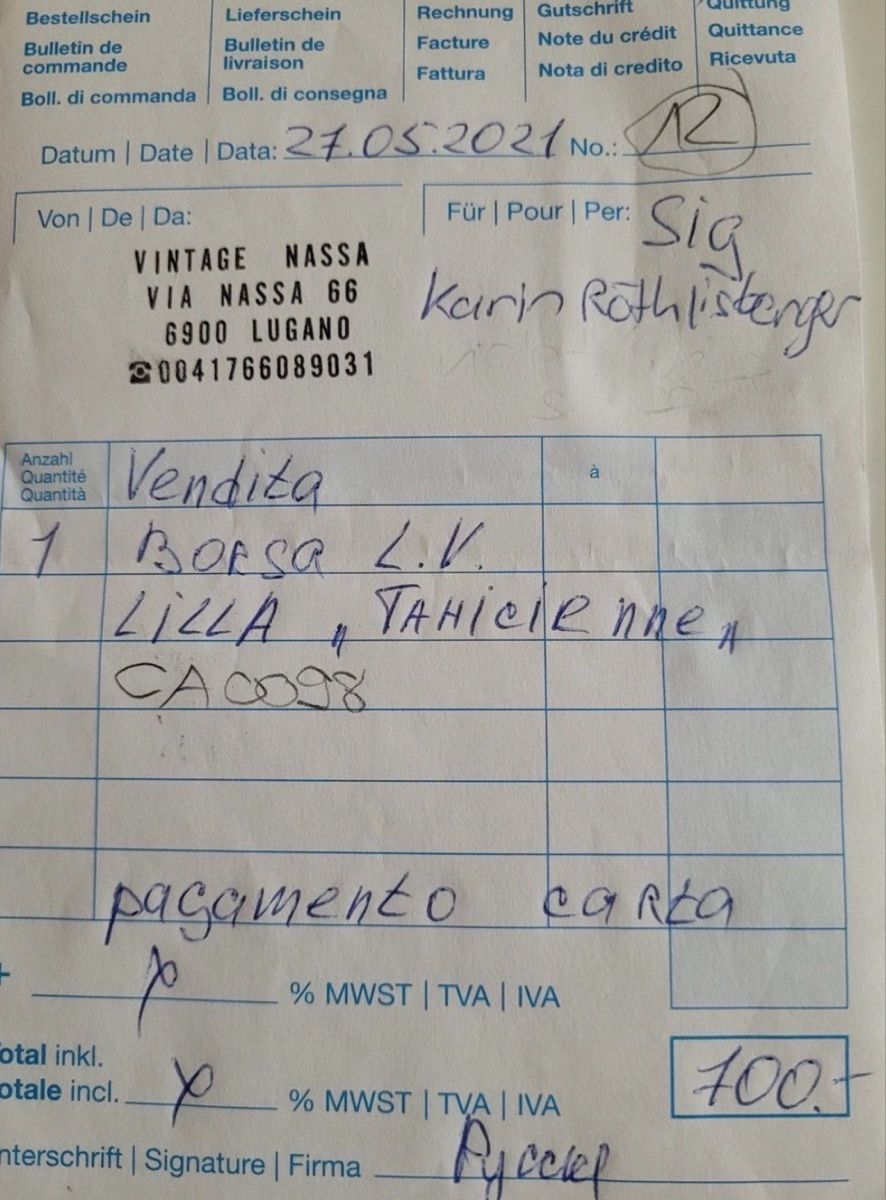 Bestellschein
Bulletin de
commande
Boll. di commanda
Lieferschein
Bulletin de
livraison
Boll. di consegna
Rechnung
Facture
Fattura
Gutschrift
Note du crédit
Nota di credito
Quittung
Quittance
Ricevuta
Datum | Date | Data: 27.05.2021 No.: 12
Von | De | Da:
VINTAGE NASSA
VIA NASSA 66
6900 LUGANO
☎0041766089031
Für | Pour | Per: Sig
Karin Röthlisberger
Anzahl
Quantité
Quantità
Vendita à
1 Borsa L.V.
LILLA „TAHICIEnne"
CA0098
pagamento carta
% MWST | TVA | IVA
otal inkl.
otale incl. % MWST | TVA | IVA
700.-
nterschrift | Signature | Firma